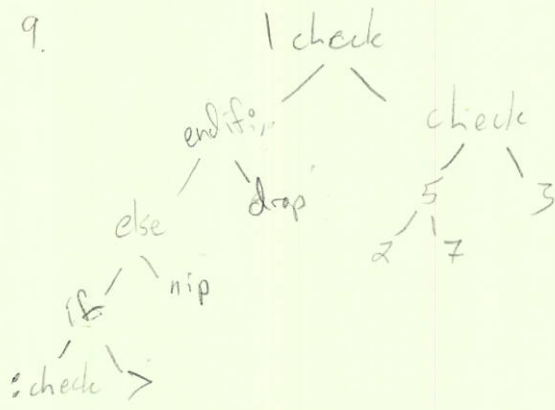 9.
1 check
endif;
check
else
drop
5
3
if
nip
2
7
:check
>